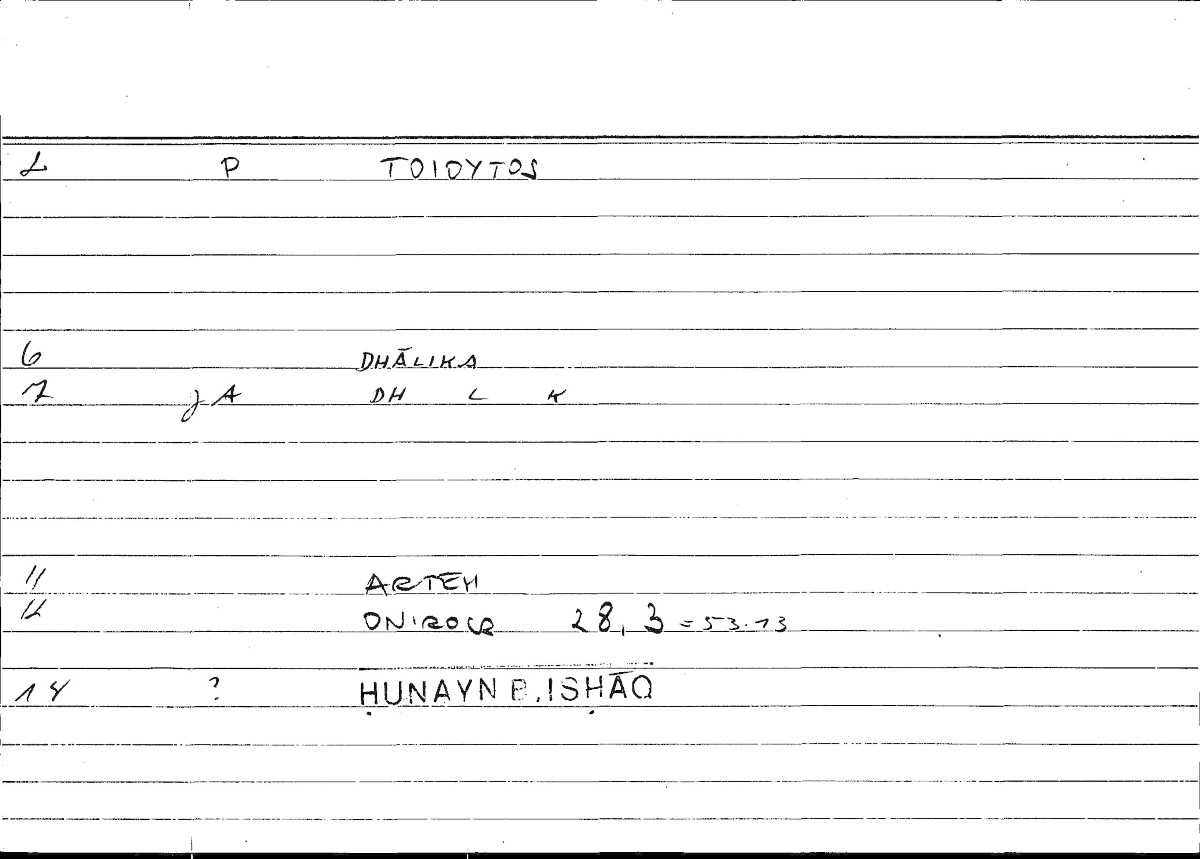 L P TOIOYTOS
6 DHĀLIKA
7 JA DH L K
11 ARTEM
12 ONIROCR 28,3 = 53.13
14 ? ḤUNAYN B. ISḤĀQ